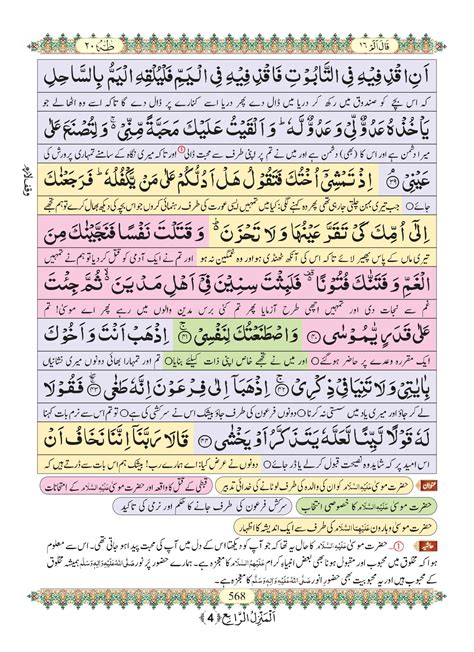 قَالَ اَلَمْ ١٦
طٰهٰ ٢٠
اَنِ اقْذِفِیْهِ فِی التَّابُوْتِ فَاقْذِفِیْهِ فِی الْیَمِّ فَلْیُلْقِهِ الْیَمُّ بِالسَّاحِلِ
کہ اس بچے کو صندوق میں رکھ کر دریا میں ڈال دے پھر دریا اسے کنارے پر ڈال دے گا تاکہ اسے وہ اٹھالے جو
یَاْخُذْهُ عَدُوٌّ لِّیْ وَ عَدُوٌّ لَّهٗ ؕ وَ اَلْقَیْتُ عَلَیْكَ مَحَبَّةً مِّنِّیْ ۚ۬ وَ لِتُصْنَعَ عَلٰی
میرا دشمن ہے اور اس کا (بھی) دشمن ہے اور میں نے تم پر اپنی طرف سے محبت ڈالی ① اور تاکہ میری نگاہ کے سامنے تمہاری پرورش کی
عَیْنِیْ ۘ(۳۹) اِذْ تَمْشِیْۤ اُخْتُكَ فَتَقُوْلُ هَلْ اَدُلُّكُمْ عَلٰی مَنْ یَّكْفُلُهٗ ؕ فَرَجَعْنٰكَ
جائے ○ جب تیری بہن چلتی جارہی تھی پھر وہ کہنے لگی: کیا میں تمہیں ایسی عورت کی طرف رہنمائی کروں جو اس بچہ کی دیکھ بھال کرے تو ہم تجھے
اِلٰۤی اُمِّكَ كَیْ تَقَرَّ عَیْنُهَا وَ لَا تَحْزَنَ ؕ۬ وَ قَتَلْتَ نَفْسًا فَنَجَّیْنٰكَ مِنَ
تیری ماں کے پاس پھیر لائے تاکہ اس کی آنکھ ٹھنڈی ہو اور وہ غمگین نہ ہو اور تم نے ایک آدمی کو قتل کردیا تو ہم نے تمہیں
الْغَمِّ وَ فَتَنّٰكَ فُتُوْنًا ۫۬ فَلَبِثْتَ سِنِیْنَ فِیْۤ اَهْلِ مَدْیَنَ ۙ۬ ثُمَّ جِئْتَ
غم سے نجات دی اور تمہیں اچھی طرح آزمایا پھر تم کئی برس مدین والوں میں رہے پھر اے موسیٰ! تم
عَلٰی قَدَرٍ یّٰمُوْسٰی (۴۰) وَ اصْطَنَعْتُكَ لِنَفْسِیْ ۚ(۴۱) اِذْهَبْ اَنْتَ وَ اَخُوْكَ
ایک مقررہ وعدے پر حاضر ہوگئے ○ اور میں نے تجھے خاص اپنی ذات کیلئے بنایا ○ تم اور تمہارا بھائی دونوں میری نشانیاں
بِاٰیٰتِیْ وَ لَا تَنِیَا فِیْ ذِكْرِیْ ۚ(۴۲) اِذْهَبَاۤ اِلٰی فِرْعَوْنَ اِنَّهٗ طَغٰی ۚۖ(۴۳) فَقُوْلَا
لے کر جاؤ اور میری یاد میں سستی نہ کرنا ○ دونوں فرعون کی طرف جاؤ بیشک اس نے سرکشی کی ہے ○ تو تم اس سے نرم بات کہنا
لَهٗ قَوْلًا لَّیِّنًا لَّعَلَّهٗ یَتَذَكَّرُ اَوْ یَخْشٰی (۴۴) قَالَا رَبَّنَاۤ اِنَّنَا نَخَافُ اَنْ
اس امید پر کہ شاید وہ نصیحت قبول کرلے یا ڈر جائے ○ دونوں نے عرض کیا: اے ہمارے رب! بیشک ہم اس بات سے ڈرتے ہیں کہ
حضرت موسیٰ عَلَیْهِ السَّلَام کو ان کی والدہ کی طرف لوٹانے کی خدائی تدبیر
قبطی کے قتل کا واقعہ اور حضرت موسیٰ عَلَیْهِ السَّلَام کے امتحانات
حضرت موسیٰ عَلَیْهِ السَّلَام کا خصوصی انتخاب
سرکش فرعون کی طرف جانے کا حکم اور نرمی کی تاکید
حضرت موسیٰ و ہارون عَلَیْهِمَا السَّلَام کی طرف سے ایک اندیشہ کا اظہار
حاشیہ ① … حضرت موسیٰ عَلَیْهِ السَّلَام کا حال یہ تھا کہ جو آپ کو دیکھتا اس کے دل میں آپ کی محبت پیدا ہو جاتی تھی۔ اس سے معلوم
ہوا کہ محبوبیت اور مقبول ہونا بھی انبیاءِ کرام عَلَیْهِمُ السَّلَام کا معجزہ ہے۔ ہمارے حضور پرنور صَلَّی اللهُ عَلَیْهِ وَاٰلِهٖ وَسَلَّم بھی مخلوق کے
محبوب ہیں اور یہ محبوبیت بھی حضورِ اقدس صَلَّی اللهُ عَلَیْهِ وَاٰلِهٖ وَسَلَّم کا معجزہ ہے۔
568
اَلْمَنْزِلُ الرَّابِع ﴿4﴾